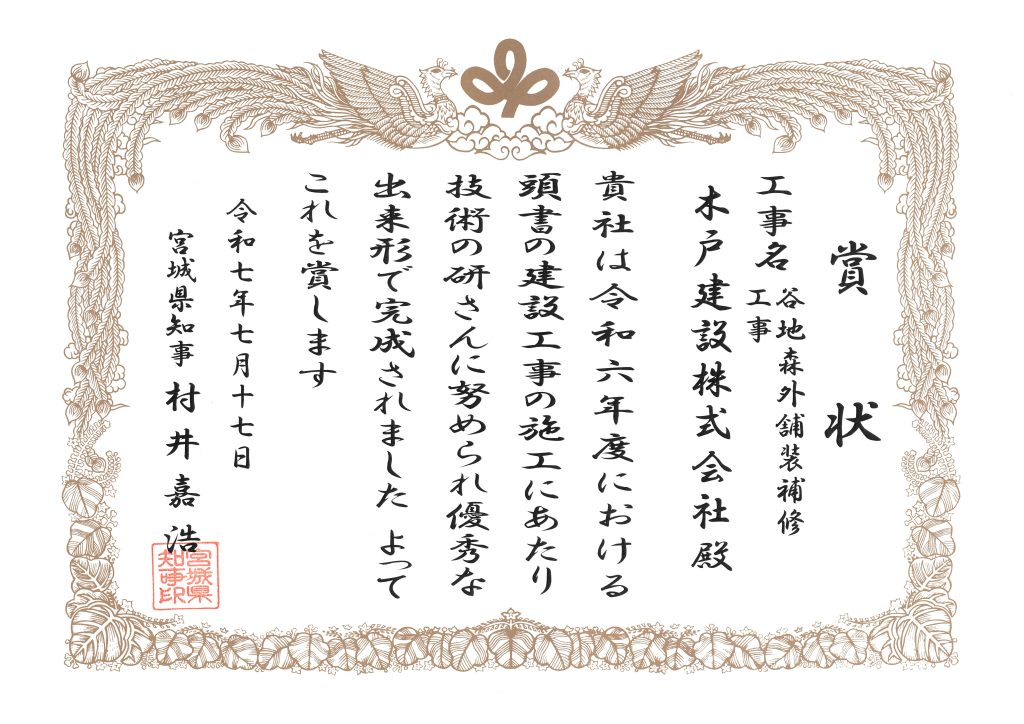 賞状
工事名 谷地森外舗装補修
工事
木戸建設株式会社殿
貴社は令和六年度における
頭書の建設工事の施工にあたり
技術の研さんに努められ優秀な
出来形で完成されました よって
これを賞します
令和七年七月十七日
宮城県知事 村井嘉浩
宮城県
知事印